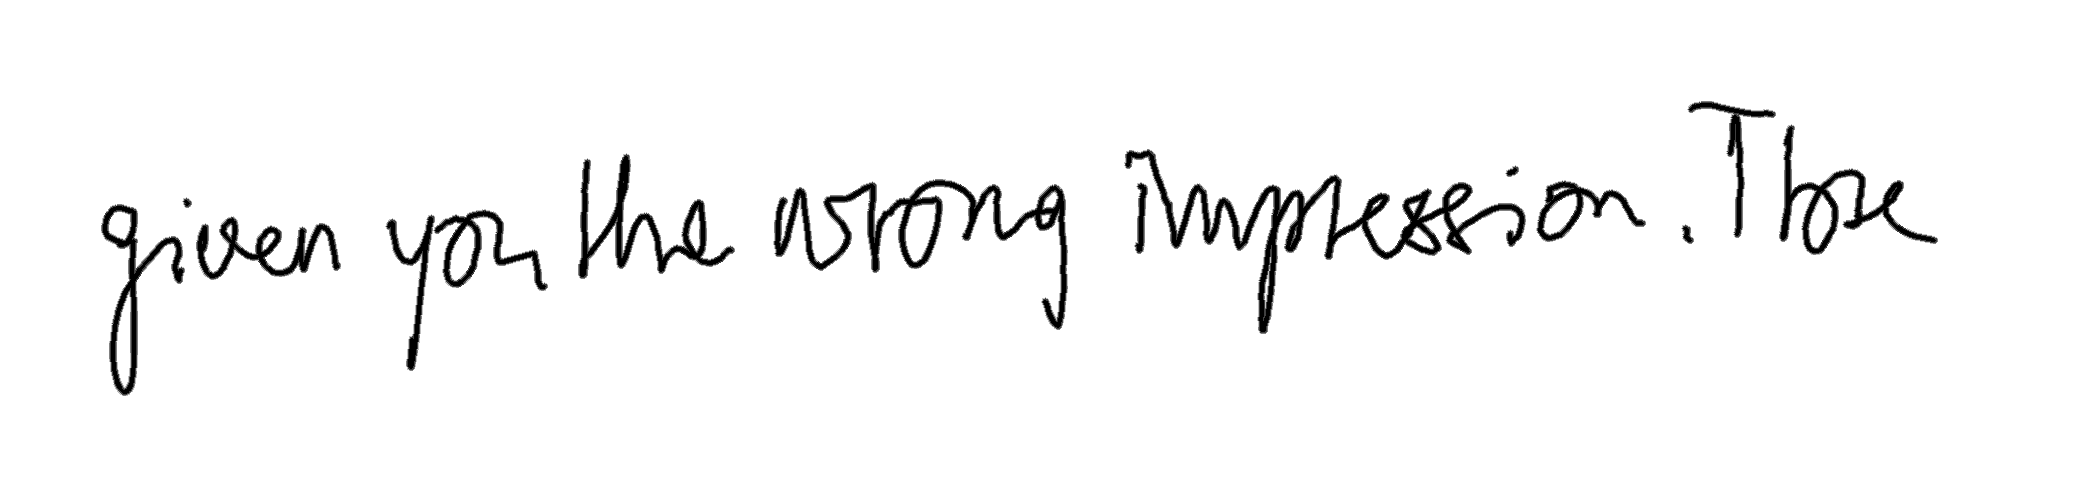 given you the wrong impression. Those